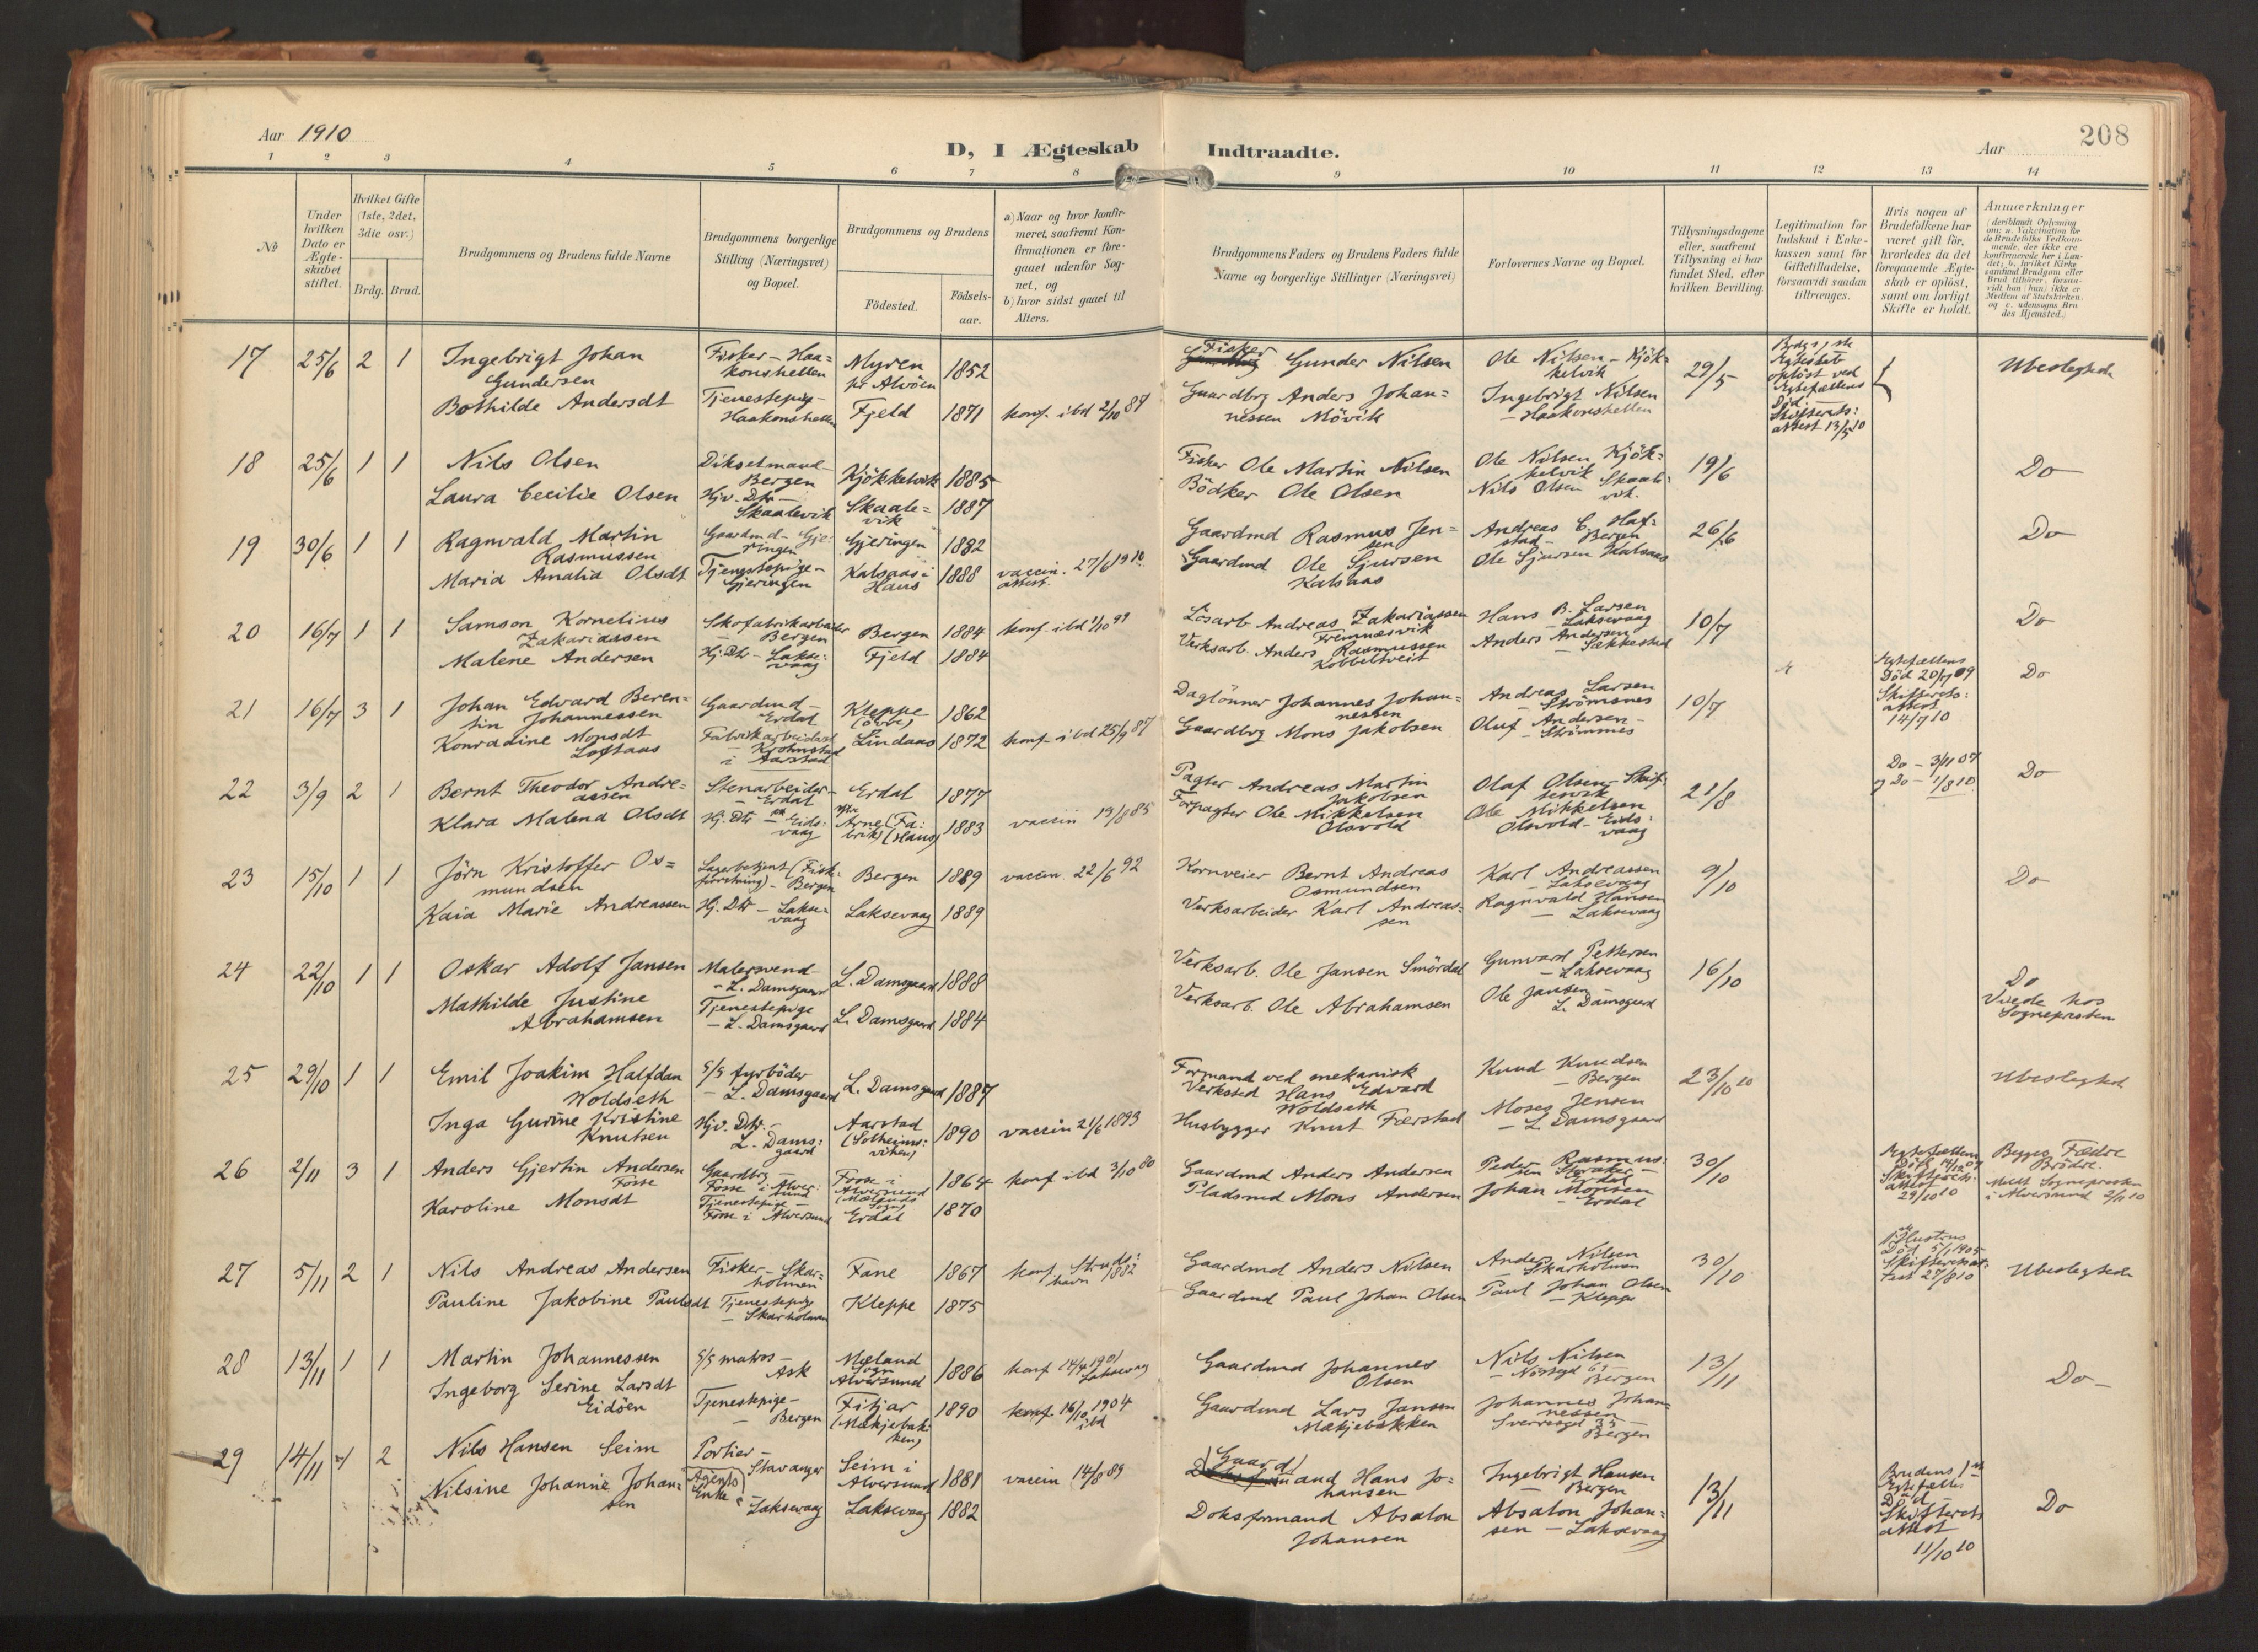 Aar 1910
D, I Ægteskab Indtraadte.
Aar
208
1 2 3 4 5 6 7 8 9 10 11 12 13 14
No
Under hvilken Dato er Ægteskabet stiftet.
Hvilket Gifte (1ste, 2det, 3die osv.)
Brdg. Brud.
Brudgommens og Brudens fulde Navne
Brudgommens borgerlige Stilling (Næringsvei) og Bopæl.
Brudgommens og Brudens
Födested.
Födselsaar.
a) Naar og hvor konfirmeret, saafremt Konfirmationen er foregaaet udenfor Sognet, og
b) hvor sidst gaaet til Alters.
Brudgommens Faders og Brudens Faders fulde Navne og borgerlige Stillinger (Næringsvei)
Forlovernes Navne og Bopæl.
Tillysningsdagene eller, saafremt Tillysning ei har fundet Sted, efter hvilken Bevilling.
Legitimation for Indskud i Enkekassen samt for Giftetilladelse, forsaavidt saadan tiltrænges.
Hvis nogen af Brudefolkene har været gift för, hvorledes da det foregaaende Ægteskab er oplöst, samt om lovligt Skifte er holdt.
Anmærkninger
(deriblandt Oplysning om: a. Vakcination for de Brudefolks Vedkommende, der ikke ere konfirmerede her i Landet; b. hvilket Kirkesamfund Brudgom eller Brud tilhörer, forsaavidt han (hun) ikke er Medlem af Statskirken, og c. udensogns Brudes Hjemsted.)
17 25/6 2 1 Ingebrigt Johan Gundersen
Fisker - Haakonshellen
Myren pr Alvöen 1852
Fisker Gunder Nilsen
Ole Nilsen - Kjökkelvik
29/5
Brdgs 1ste Ægteskab oplöst ved Ægtefællens Död. - Skifterets: attest 13/5 10
Ubeslegtede
Bothilde Andersdt
Tjenestepige - Haakonshellen
Fjeld 1871 konf. ibd 2/10 87
Gaardbrg Anders Johannessen Mövik
Ingebrigt Nilsen - Haakonshellen
18 25/6 1 1 Nils Olsen
Bergen
Kjökkelvik 1885
Fisker Ole Martin Nilsen
Ole Nilsen Kjökkelvik
19/6
Do
Laura Cecilie Olsen
Hjv. Dtr - Skaalevik
Skaalevik 1887
Bödker Ole Olsen
Nils Olsen Skaalevik.
19 30/6 1 1 Ragnvald Martin Rasmussen
Gaardmd - Gjeringen
Gjeringen 1882
Gaardmd Rasmus Jensen
Andreas C. Hafstad - Bergen
26/6
Do
Maria Amalia Olsdt
Tjenestepige - Gjeringen
Kalsaas i Haus 1888 vaccin. 27/6 1910 attest.
Gaardmd Ole Sjursen Kalsaas
Ole Sjursen Kalsaas
20 16/7 1 1 Samson Kornelius Zakariassen
Skofabrikarbeider - Bergen
Bergen 1884 konf. ibd 1/10 99
Lösarb Andreas Zakariassen
Hans B. Larsen - Laksevaag
10/7
Do
Malene Andersen
Hj. Dtr - Laksevaag
Fjeld 1884
Verksarb. Anders Rasmussen Kobbeltveit
Anders Andersen - Sekkestad
21 16/7 3 1 Johan Edvard Berentin Johannessen
Gaardmd - Erdal
Kleppe 1862
Daglönner Johannes Johannessen
Andreas Larsen - Strömsnes
10/7
Ægtefællens Död 20/7 09 Skifterets: attest 14/7 10
Do
Konradine Monsdt Loftaas
Fabrikarbeiderske - Krohnstad i Aarstad
Lindaas 1872 konf. ibd 25/9 87
Gaardbrg Mons Jakobsen
Oluf Andersen - Strömsnes
22 3/9 2 1 Bernt Theodor Andreassen
Stenarbeider - Erdal
Erdal 1877
Pagter Andreas Martin Jakobsen
Olaf Olsen
21/8
Do - 3/11 07 og Do - 1/8 10
Do
Klara Malena Olsdt
Hj. Dtr - Eidsvaag
Arne (Fabrik) (Haus) 1883 vaccin 19/8 85
Forpagter Ole Mikkelsen Olsvold
Ole Mikkelsen Olsvold - Eidsvaag
23 15/10 1 1 Jörn Kristoffer Osmundsen
Lagerbetjent (Fiskforretning) - Bergen
Bergen 1889 vaccin. 22/6 92
Kornveier Bernt Andreas Osmundsen
Karl Andreassen - Laksevaag
9/10
Do
Kaia Marie Andreassen
Hj. Dtr - Laksevaag
Laksevaag 1889
Verksarbeider Karl Andreassen
Ragnvald Hansen - Laksevaag
24 22/10 1 1 Oskar Adolf Jansen
Malersvend - L. Damsgaard
L. Damsgaard 1888
Verksarb. Ole Jansen Smördal
Gunvard Pettersen - Laksevaag
16/10
Do Viede hos Sognepresten
Mathilde Justine Abrahamsen
Tjenestepige - L. Damsgaard
L. Damsgaard 1884
Verksarb. Ole Abrahamsen
Ole Jansen - L. Damsgaard
25 29/10 1 1 Emil Joakim Halfdan Woldseth
S/S fyrböder - L. Damsgaard
L. Damsgaard 1887
Formand ved mekanisk Verksted Hans Edvard Woldseth
Knud Knudsen - Bergen
23/10 10
Ubeslegtede
Inga Gurine Kristine Knutsen
Hjv. Dtr. - L. Damsgaard
Aarstad (Solheimsviken) 1890 vaccin 21/6 1893
Husbygger Knut Færstad
Moses Jensen - L. Damsgaard
26 2/11 3 1 Anders Gjertin Andersen Fosse
Gaardbrg - Fosse i Alversund
Fosse i Alversund 1864 konf ibd 3/10 80
Gaardmd Anders Andersen
Peder Rasmussen - Erdal
30/10
Ægtefællens Död 14/12 07 Skifterets: attest 29/10 10
Begges Fædre Brödre. Meldt Sognepresten i Alversund 2/11 10
Karoline Monsdt
Tjenestepige - Fosse i Alversund
Erdal 1870
Pladsmd Mons Andersen
Johan Monsen - Erdal
27 5/11 2 1 Nils Andreas Andersen
Fisker - Skarholmen
Fane 1867 konf. 1882
Gaardmd Anders Nilsen
Anders Nilsen - Skarholmen
30/10
Död 5/1 1905 Skifteretsattest 27/8 10
Ubeslegtede
Pauline Jakobine Paulsdt
Tjenestepige - Skarholmen
Kleppe 1875
Gaardmd Paul Johan Olsen
Paul Johan Olsen - Kleppe
28 13/11 1 1 Martin Johannessen
S/S matros - Ask
Mæland Sogn Alversund 1886 konf 14/4 1901 Laksevaag
Gaardmd Johannes Olsen
Nils Nilsen - Bergen
13/11
Do -
Ingeborg Serine Larsdt Eidöen
Tjenestepige - Bergen
Fitjar (Mækjebakken) 1890 konf. 16/10 1904 ibd
Gaardmd Lars Jansen Mækjebakken
Johannes Johannessen Sverresgd 33 - Bergen
29 14/11 1 2 Nils Hansen Seim
Portier - Stavanger
Seim i Alversund 1881 vaccin 14/8 89
(Gaard) mand Hans Johansen
Ingebrigt Hansen - Bergen
13/11
Brudens 1ste Ægtefælles Död - Skifterets attest 11/10 10
Do
Nilsine Johanne Johansen
Agents Enke - Laksevaag
Laksevaag 1882
Doksformand Absalon Johansen
Absalon Johansen - Laksevaag